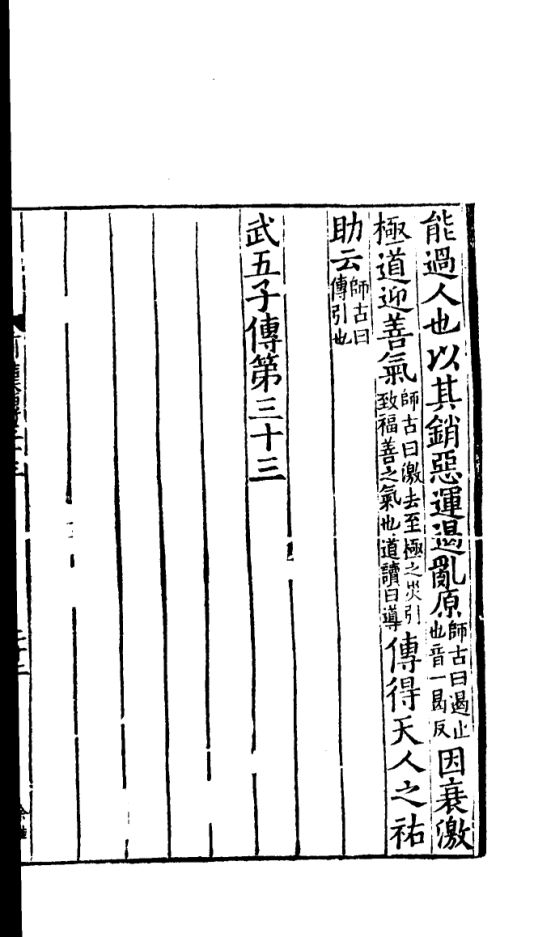 能過人也以其銷惡運遏亂原師古曰遏止也音一曷反因衰激
極道迎善氣師古曰激去至極之災引致福善之氣也道讀曰導傳得天人之祐
助云師古曰傳引也
武五子傳第三十三